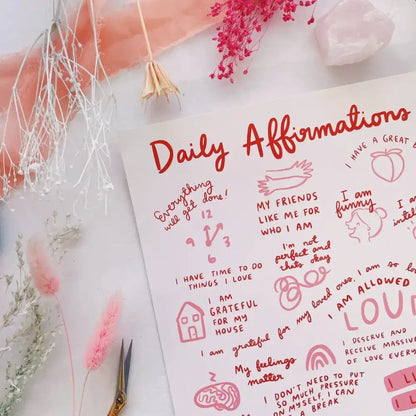 Daily Affirmations
Everything
will get done!
12
9 3
6
I HAVE TIME TO DO
THINGS I LOVE
MY FRIENDS
LIKE ME FOR
WHO I AM
I HAVE A GREAT
I am
funny
I am
I'm not
perfect and
thats okay
I AM
GRATEFUL
FOR MY
HOUSE
I am grateful for my loved ones, I am so
I AM ALLOWED
I DESERVE
RECEIVE MASSIVE
OF LOVE
My feelings
matter
I DON'T NEED TO PUT
SO MUCH PRESSURE
ON MYSELF, I CAN
A BREAK